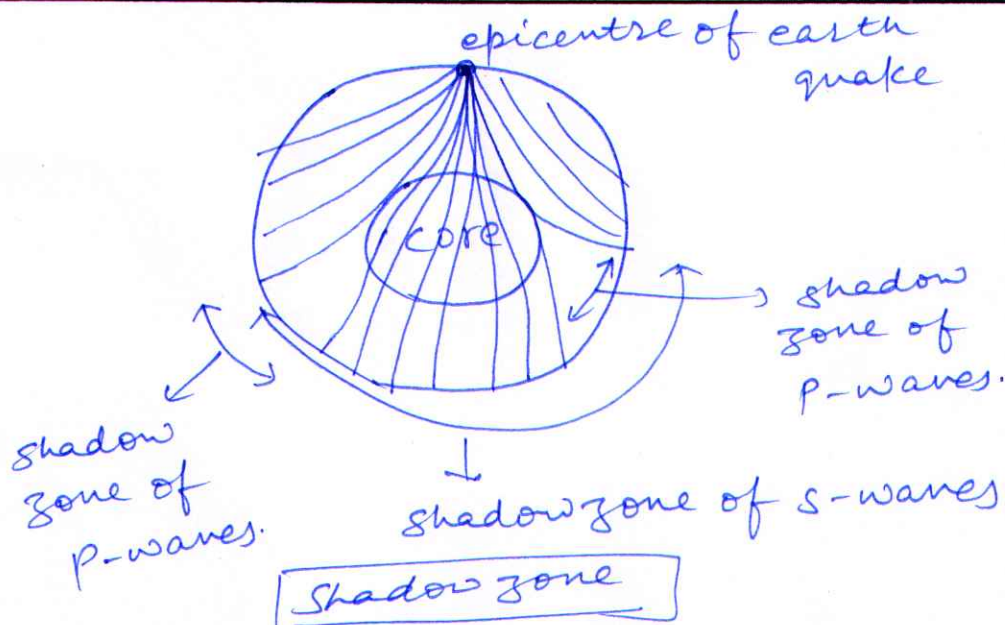 epicentre of earth
quake
core
shadow
zone of
P-waves.
shadow
zone of
P-waves.
shadow zone of S-waves
Shadow zone